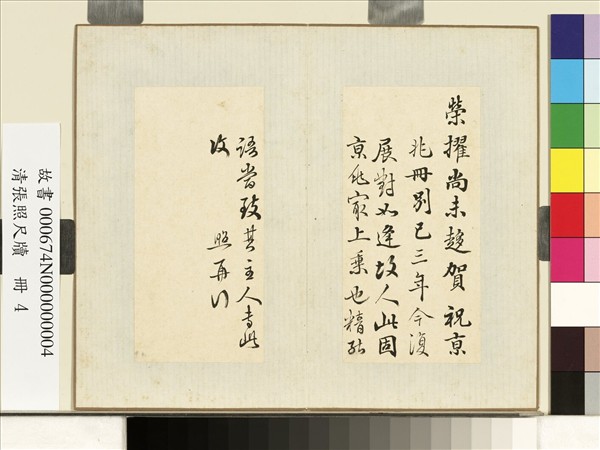 榮擢尚未趍賀祝京
兆冊別已三年今復
展對如逢故人此固
京兆最上乘也精
語當致其主人專此
照再行
故書 000674N000000004
清張照尺牘 冊 4